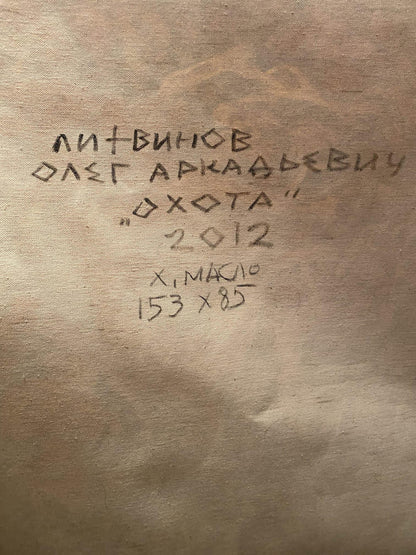 ЛИТВИНОВ
ОЛЕГ АРКАДЬЕВИЧ
„ОХОТА"
2012
Х, МАСЛО
153 х 85